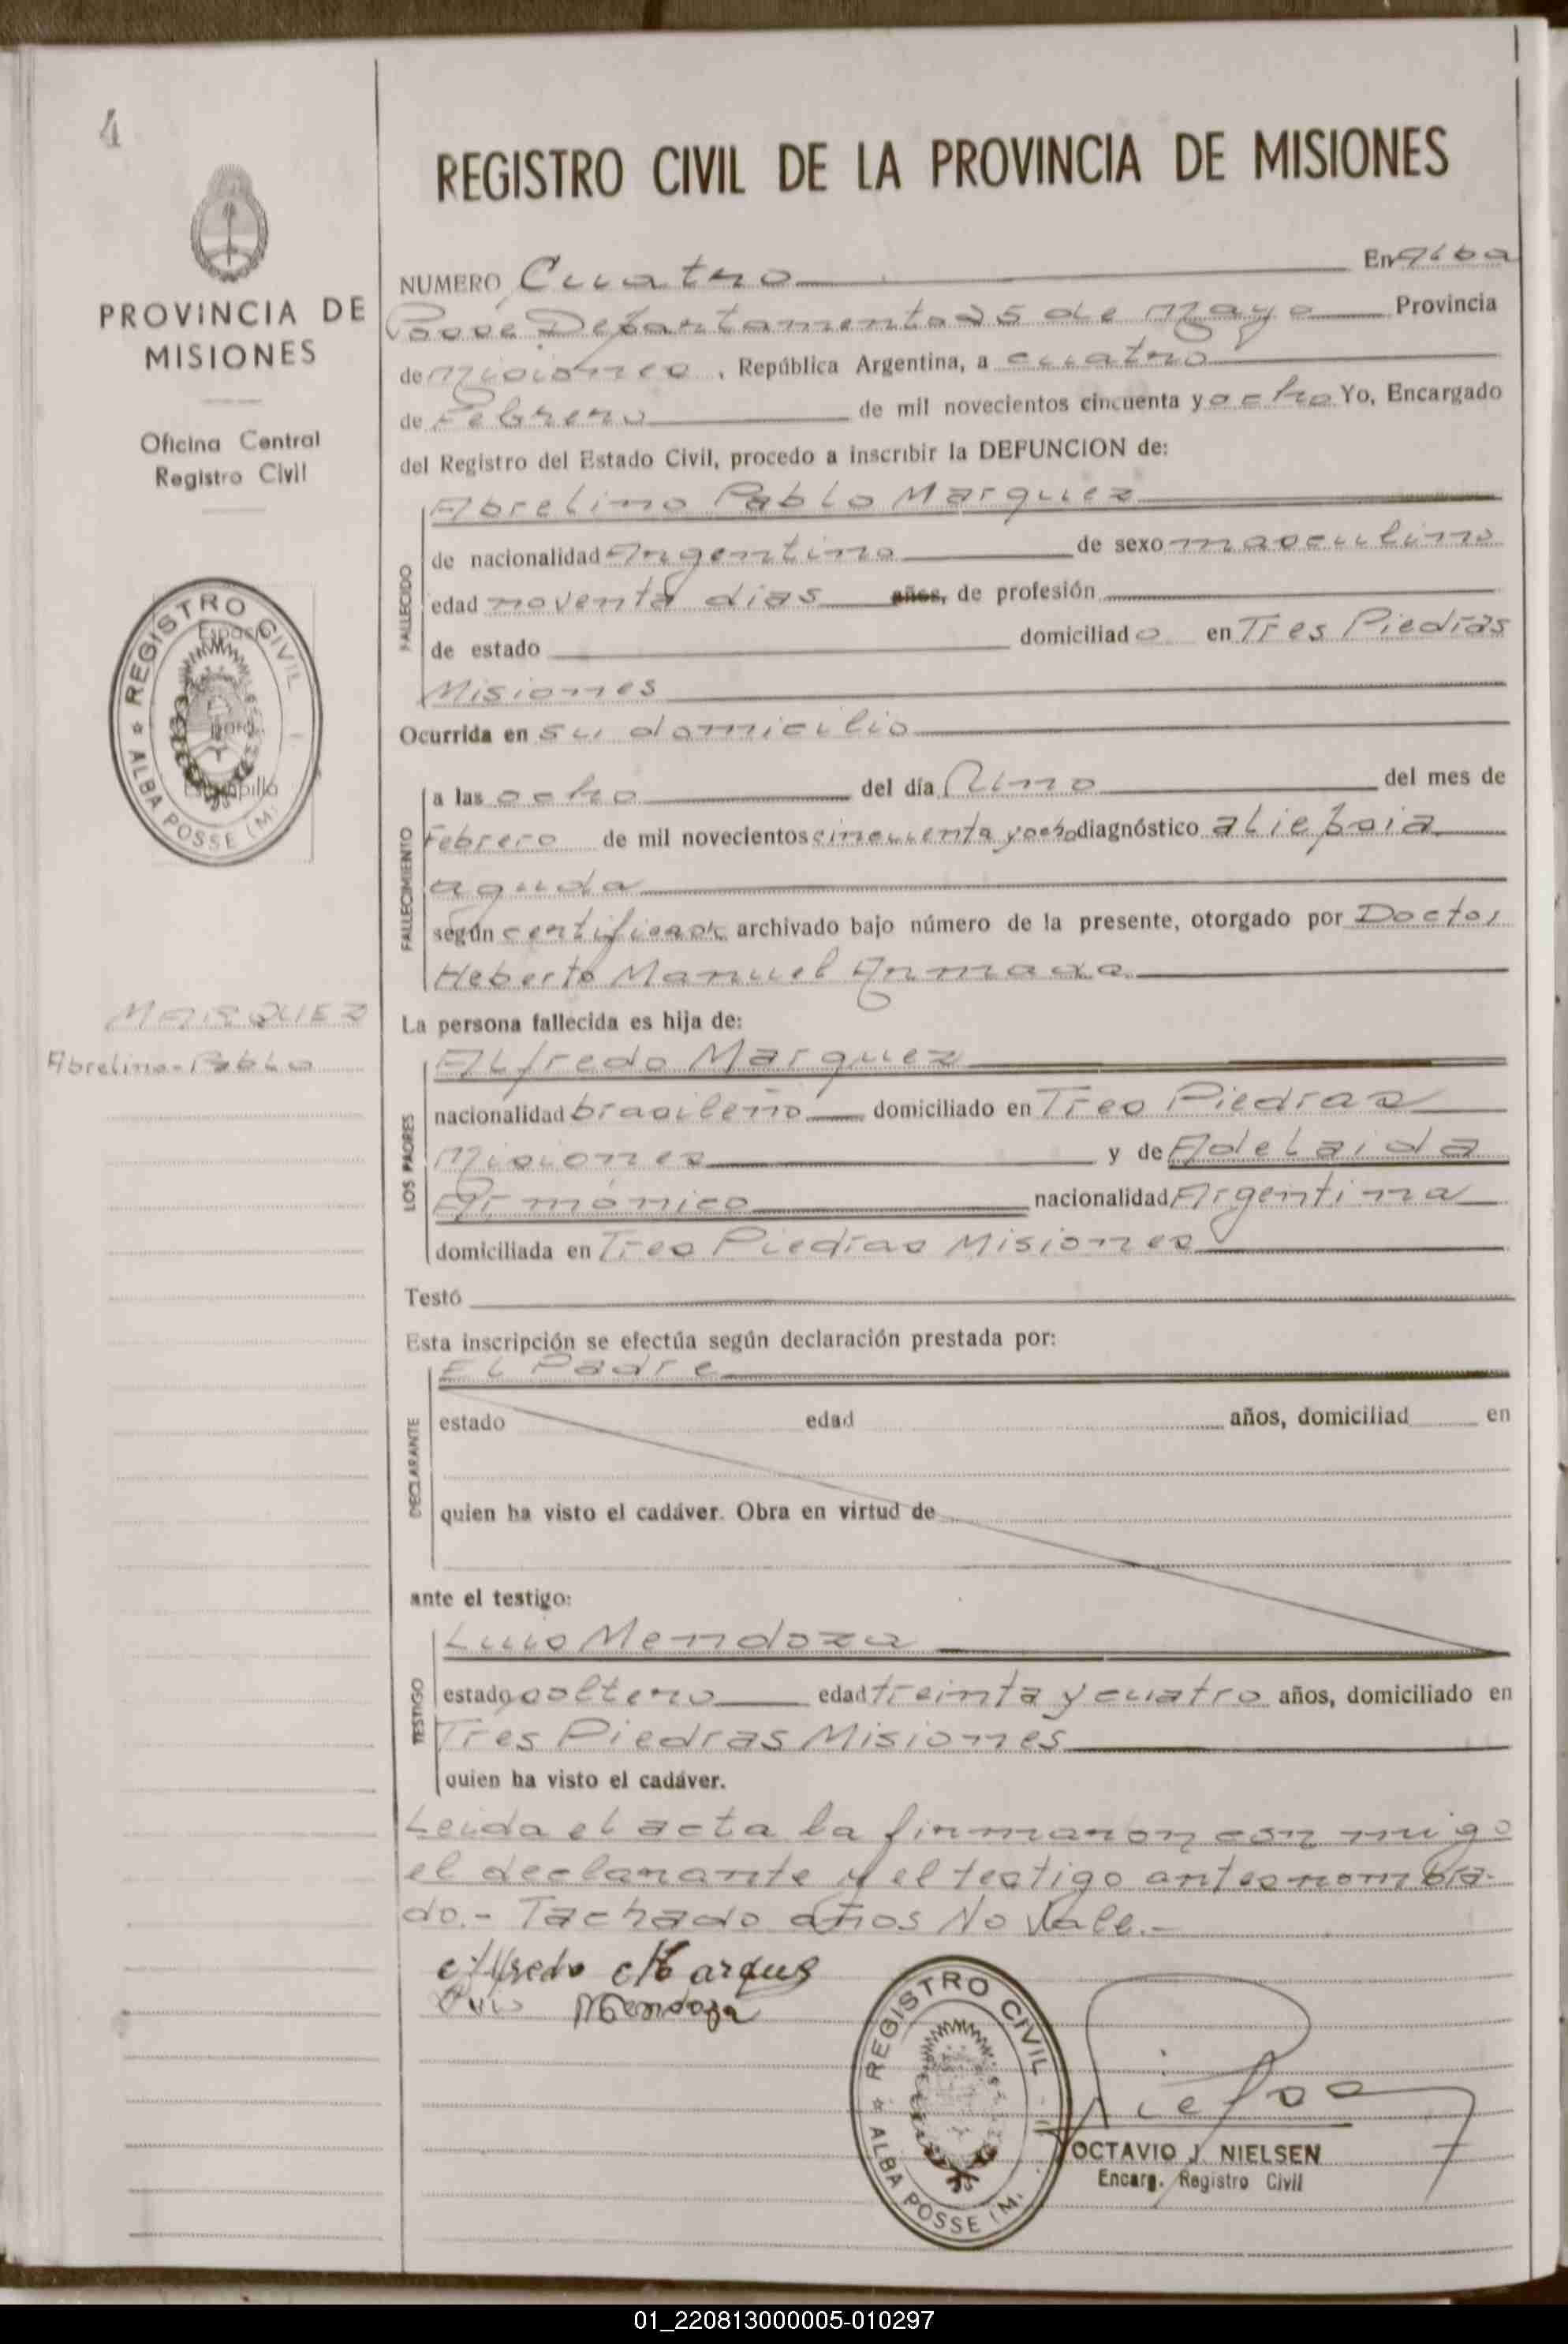 4
REGISTRO CIVIL DE LA PROVINCIA DE MISIONES
PROVINCIA DE
MISIONES
Oficina Central
Registro Civil
REGISTRO CIVIL
ALBA POSSE (M.
Espacio
para
Estampilla
MARQUEZ
Abrelino-Pablo
NUMERO Cuatro En Alba
Posse Departamento 25 de Mayo Provincia
de Misiones, República Argentina, a cuatro
de Febrero de mil novecientos cincuenta y ocho Yo, Encargado
del Registro del Estado Civil, procedo a inscribir la DEFUNCION de:
FALLECIDO
Abrelino Pablo Marquez
de nacionalidad Argentina de sexo masculino
edad noventa dias años, de profesión
de estado domiciliado en Tres Piedras
Misiones
Ocurrida en su domicilio
FALLECIMIENTO
a las ocho del día Uno del mes de
Febrero de mil novecientos cincuenta y ocho diagnóstico
aguda
según certificado archivado bajo número de la presente, otorgado por Doctor
Heberto Manuel
La persona fallecida es hija de:
LOS PADRES
Alfredo Marquez
nacionalidad brasileño domiciliado en Tres Piedras
Misiones y de Adelaida
nacionalidad Argentina
domiciliada en Tres Piedras Misiones
Testó
Esta inscripción se efectúa según declaración prestada por:
DECLARANTE
El Padre
estado edad años, domiciliad en
quien ha visto el cadáver. Obra en virtud de
ante el testigo:
TESTIGO
Luis Mendoza
estado soltero edad treinta y cuatro años, domiciliado en
Tres Piedras Misiones
quien ha visto el cadáver.
Leida el acta la firmaron con migo
el declarante y el testigo antesnombra-
do.- Tachado años No Vale.-
Alfredo Marques
Luis Mendoza
REGISTRO CIVIL
ALBA POSSE (M.
OCTAVIO J. NIELSEN
Encarg. Registro Civil
01_220813000005-010297